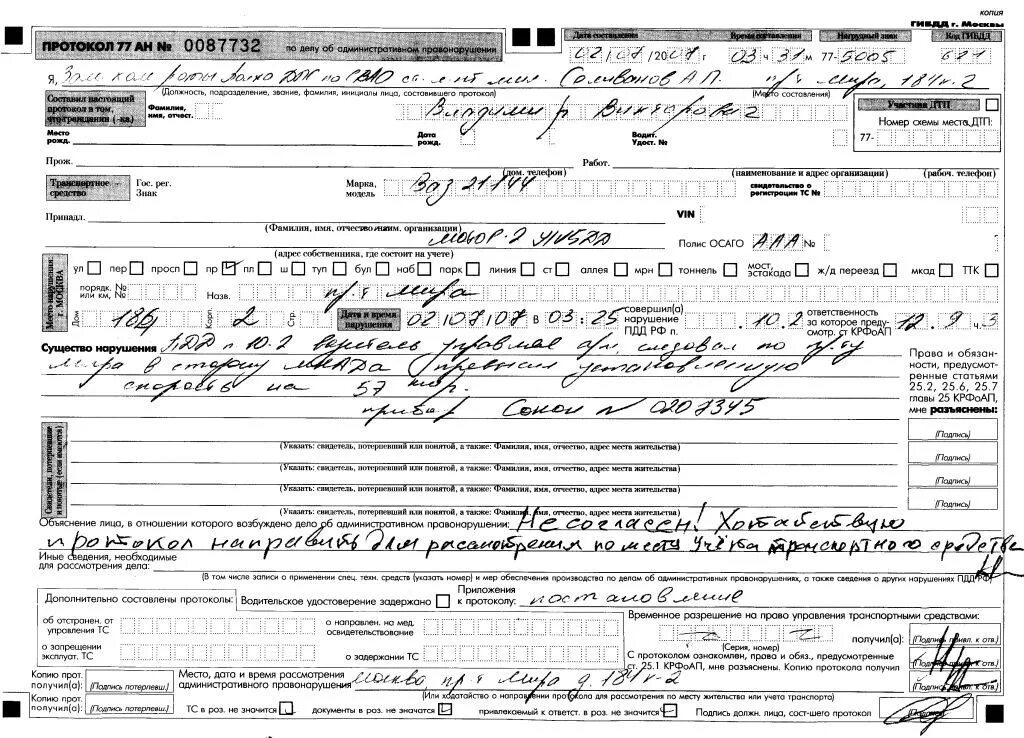 копия
ГИБДД г. Москвы
ПРОТОКОЛ 77 АН № 0087732 по делу об административном правонарушении
Дата составления Время составления Нагрудный знак Код ГИБДД
02/07/2007 03 ч 31 м 77-5005 671
Я, Зам ком роты полка ДПС по СВАО ст. л-нт мил. Селиванов А П. пр-т Мира, 184 к. 2
(Должность, подразделение, звание, фамилия, инициалы лица, составившего протокол) (Место составления)
Составил настоящий протокол в том, что гражданин (-ка) Фамилия, имя, отчест. Владимир Викторович
Участник ДТП
Номер схемы места ДТП:
77-
Место рожд. Дата рожд. Водит. Удост. №
Прож. Работ.
(дом. телефон) (наименование и адрес организации) (рабоч. телефон)
Транспортное средство Гос. рег. Знак Марка, модель Ваз 21144 свидетельство о регистрации ТС №
Принадл. VIN
(Фамилия, имя, отчество/наим. организации)
МОТОР-2 УГИБДД Полис ОСАГО ААА №
(адрес собственника, где состоит на учете)
Место нарушения г. МОСКВА
ул пер просп пр пл ш туп бул наб парк линия ст аллея мрн тоннель мост, эстакада ж/д переезд мкад ТТК
порядк. № или км, № Назв. пр-т Мира
Дом 186 Корп. 2 Стр. Дата и время нарушения 02/07/07 в 03:25 совершил(а) нарушение ПДД РФ п. 10.2 ответственность за которое предусмотр. ст КРФоАП 12.9 ч.3
Существо нарушения ПДД п 10.2 водитель управляя а/м, следовал по пр-ту
Мира в сторону МКАДа превысил установленную
скорость на 57 км/ч.
прибор Сокол № 0207345
Права и обязанности, предусмотренные статьями 25.2, 25.6, 25.7 главы 25 КРФоАП, мне разъяснены:
(Подпись)
(Подпись)
(Подпись)
(Подпись)
Свидетели, потерпевшие и понятые (если имеются)
(Указать: свидетель, потерпевший или понятой, а также: Фамилия, имя, отчество, адрес места жительства)
(Указать: свидетель, потерпевший или понятой, а также: Фамилия, имя, отчество, адрес места жительства)
(Указать: свидетель, потерпевший или понятой, а также: Фамилия, имя, отчество, адрес места жительства)
(Указать: свидетель, потерпевший или понятой, а также: Фамилия, имя, отчество, адрес места жительства)
Объяснение лица, в отношении которого возбуждено дело об административном правонарушении: Не согласен! Хотатайствую
протокол направить для рассмотрения по месту учёта транспортного средства
Иные сведения, необходимые для рассмотрения дела:
(В том числе записи о применении спец. техн. средств (указать номер) и мер обеспечения производства по делам об административных правонарушениях, а также сведения о других нарушениях ПДД РФ)
Дополнительно составлены протоколы: Водительское удостоверение задержано Приложения к протоколу: постановление
об отстранен. от управления ТС о направлен. на мед. освидетельствование
Временное разрешение на право управления транспортными средствами:
получил(а): (Подпись привл. к отв.)
(Серия, номер)
о запрещении эксплуат. ТС о задержании ТС
С протоколом ознакомлен, права и обяз., предусмотренные ст. 25.1 КРФоАП, мне разъяснены. Копию протокола получил
(Подпись привл. к отв.)
(Подпись привл. к отв.)
Копию прот. получил(а): (Подпись потерпевш.) Место, дата и время рассмотрения административного правонарушения: Москва пр-т Мира д. 184 к-2
(Или ходатайство о направлении протокола для рассмотрения по месту жительства или учета транспорта)
Копию прот. получил(а): (Подпись потерпевш.) ТС в роз. не значится документы в роз. не значатся привлекаемый к ответст. в роз. не значится Подпись должн. лица, сост-шего протокол (Подпись)